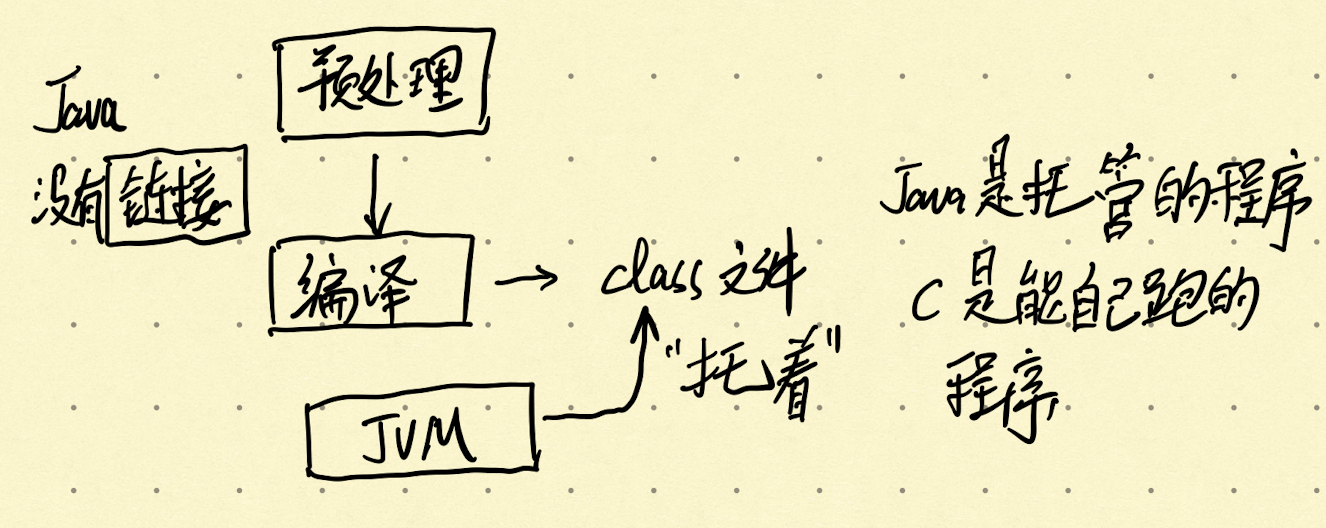 预处理
Java
没有链接
编译
class 文件
"托着"
JVM
Java是托管的程序
C 是能自己跑的
程序